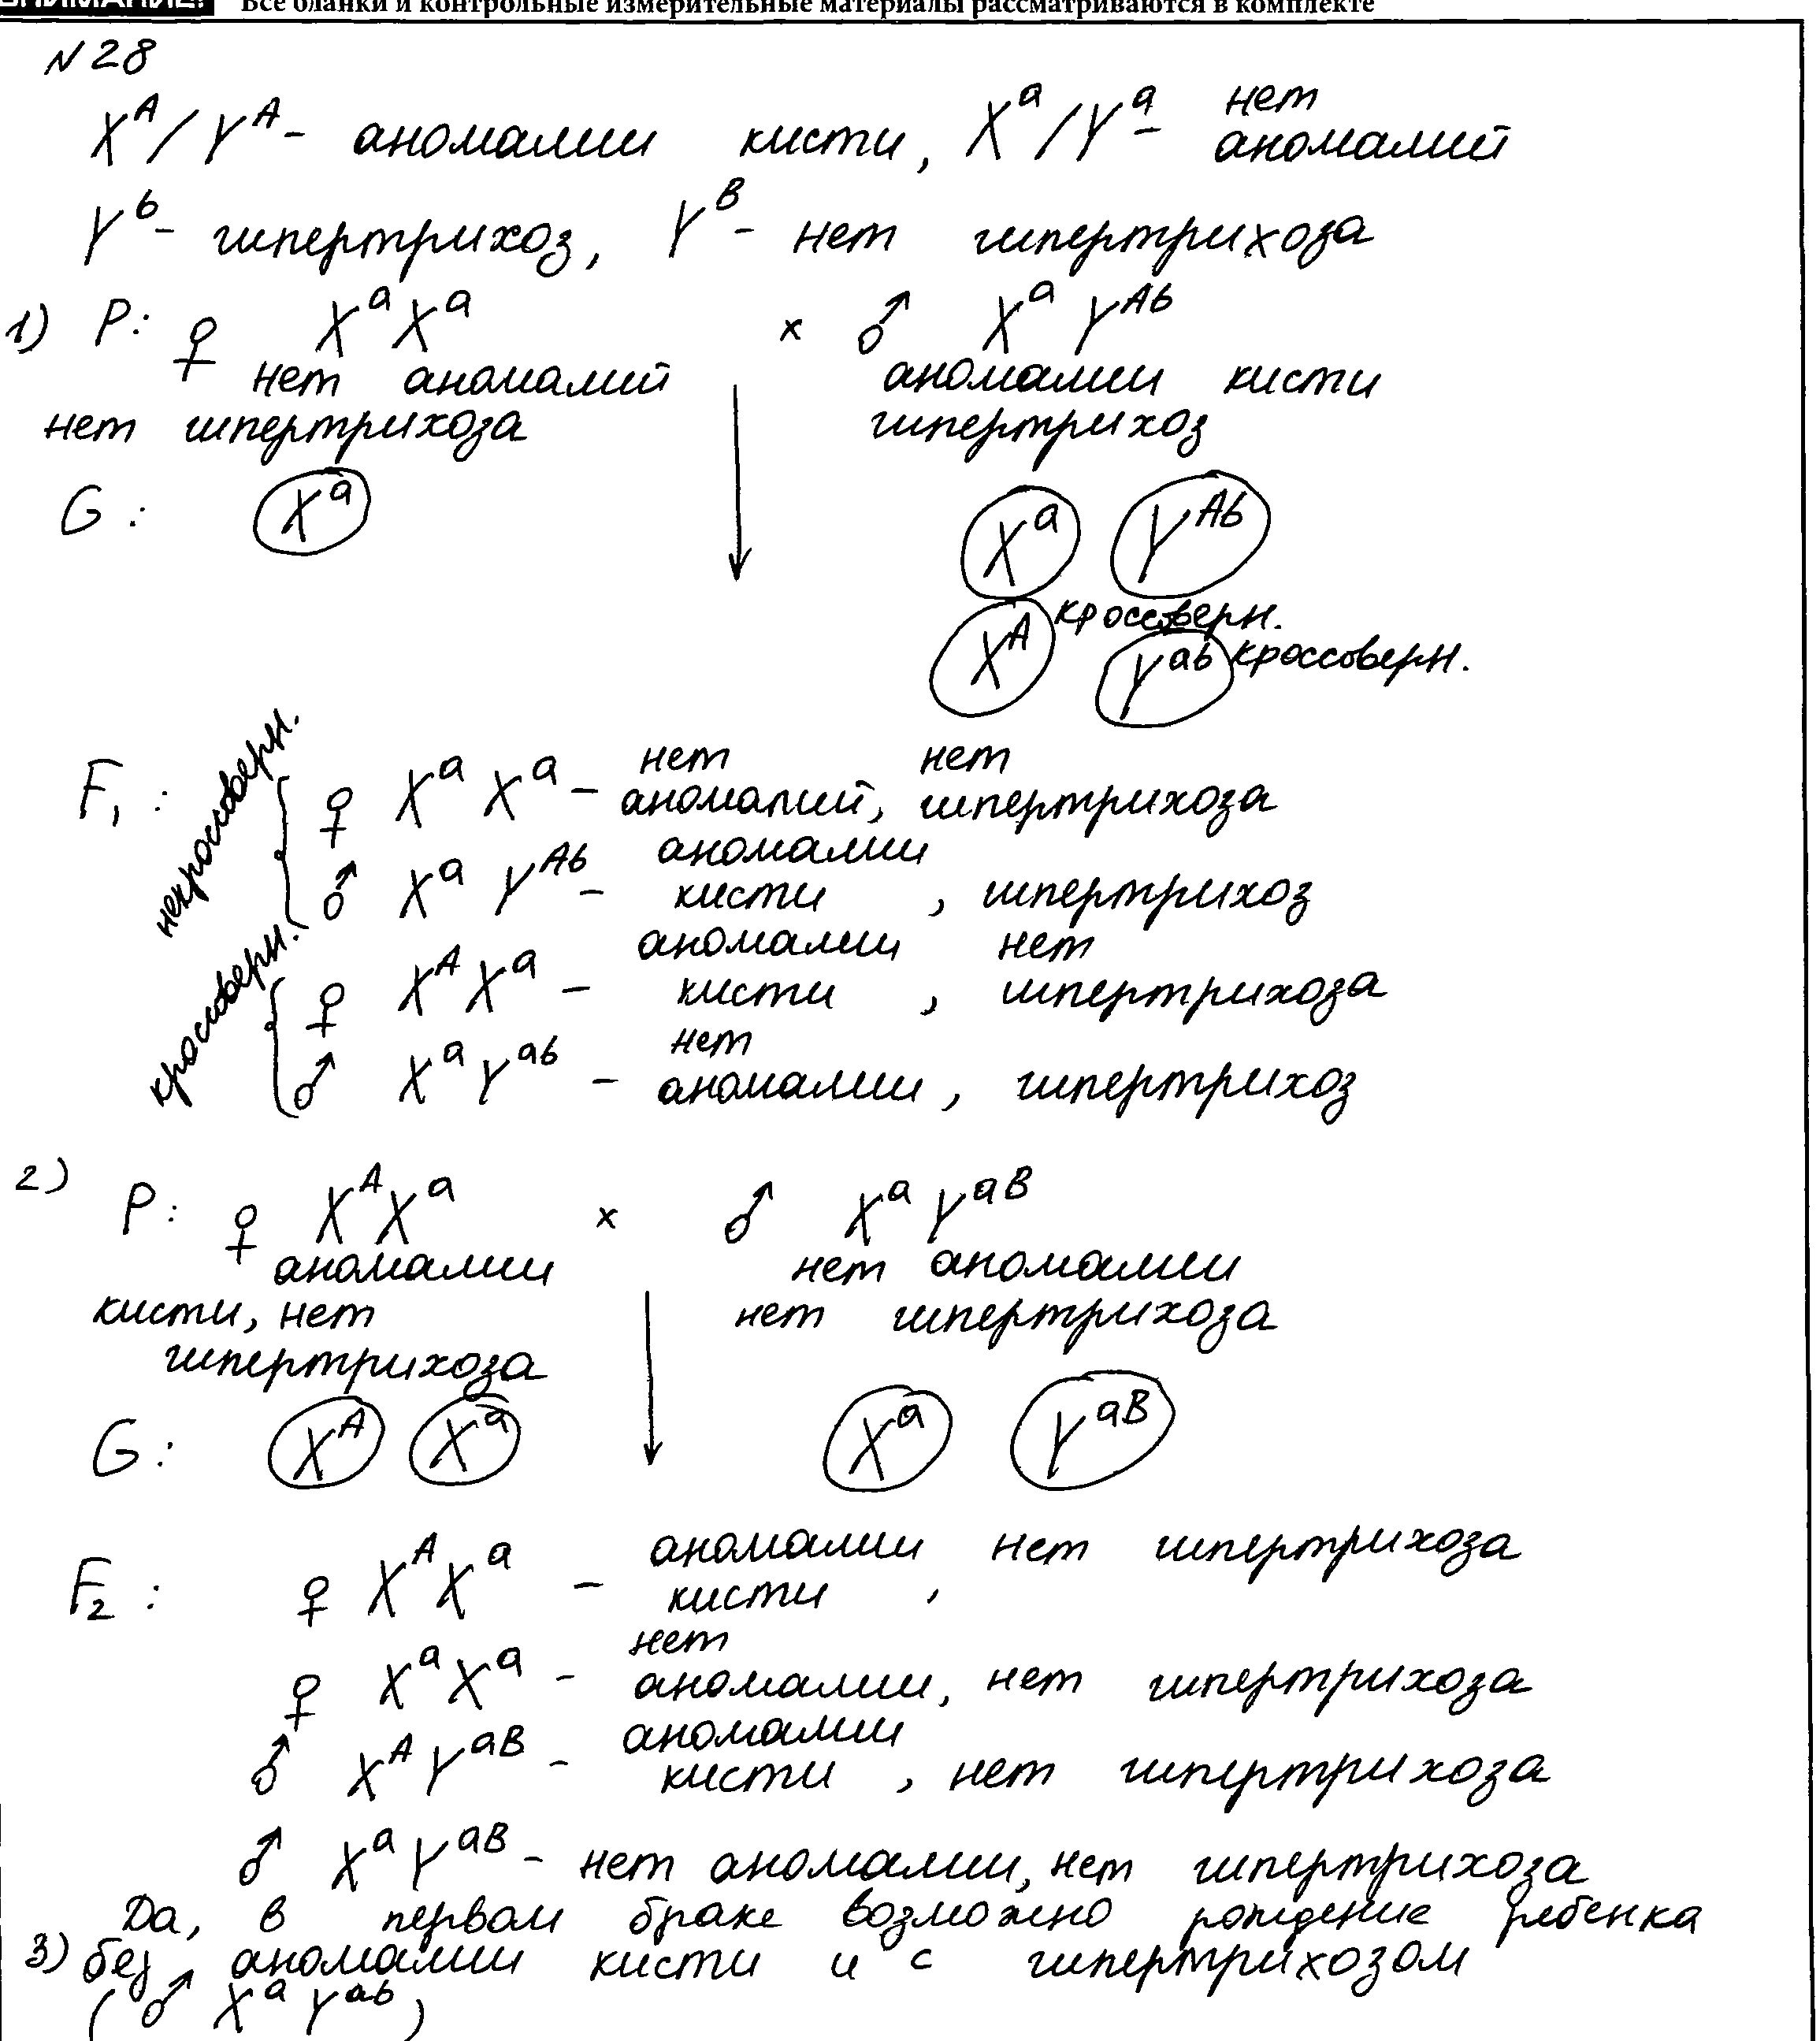 ВНИМАНИЕ! Все бланки и контрольные измерительные материалы рассматриваются в комплекте
№ 28
X^A / Y^A - аномалии кисти, X^a / Y^a - нет аномалий
Y^b - гипертрихоз, Y^B - нет гипертрихоза
1) P: ♀ X^a X^a × ♂ X^a Y^Ab
нет аномалий аномалии кисти
нет гипертрихоза гипертрихоз
G: X^a X^a Y^Ab
X^A кроссверн. Y^ab кроссоверн.
F1: некроссоверн. ♀ X^a X^a - нет аномалий, нет гипертрихоза
♂ X^a Y^Ab - аномалии кисти, гипертрихоз
кроссоверн. ♀ X^A X^a - аномалии кисти, нет гипертрихоза
♂ X^a Y^ab - нет аномалии, гипертрихоз
2) P: ♀ X^A X^a × ♂ X^a Y^aB
аномалии нет аномалии
кисти, нет нет гипертрихоза
гипертрихоза
G: X^A X^a X^a Y^aB
F2: ♀ X^A X^a - аномалии кисти, нет гипертрихоза
♀ X^a X^a - нет аномалии, нет гипертрихоза
♂ X^A Y^aB - аномалии кисти, нет гипертрихоза
♂ X^a Y^aB - нет аномалии, нет гипертрихоза
Да, в первом браке возможно рождение ребенка
3) без аномалии кисти и с гипертрихозом
(♂ X^a Y^ab)